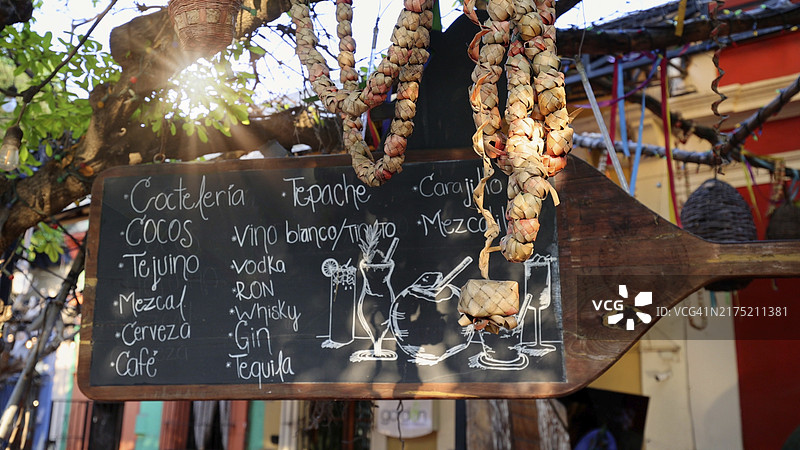 ·Coctelería
·Tepache
·Carajillo
·COCOS
·Vino blanco/Tinto
·Tejuino
·Vodka
·Mezcal
·RON
·Whisky
·Cerveza
·Gin
·Café
·Tequila
VCG
ID: VCG41N2175211381